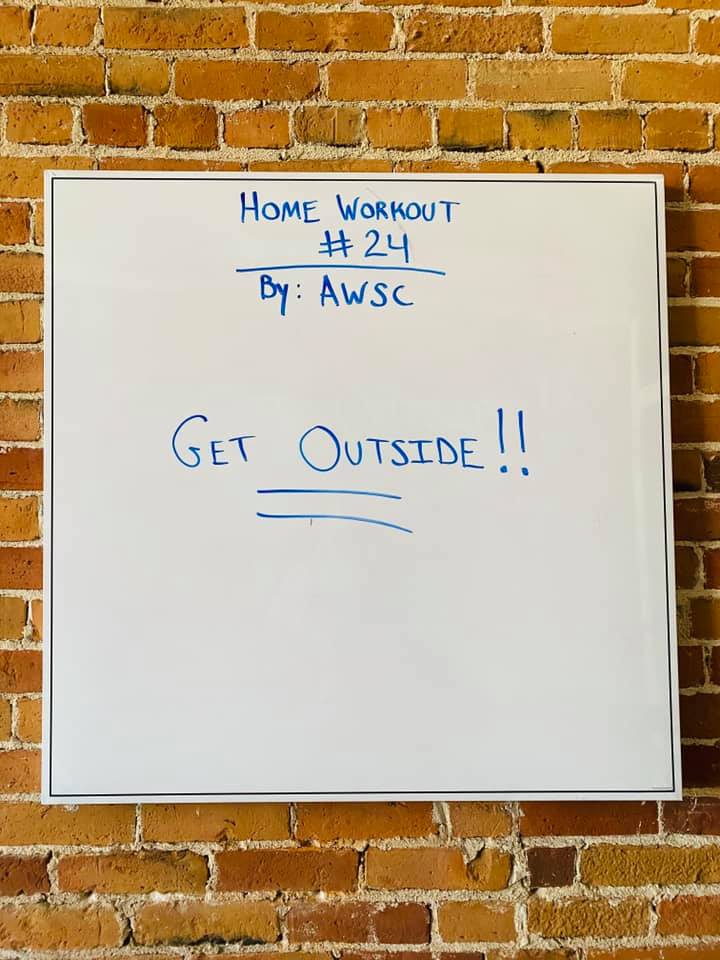 HOME WORKOUT
# 24
By: AWSC
GET OUTSIDE!!